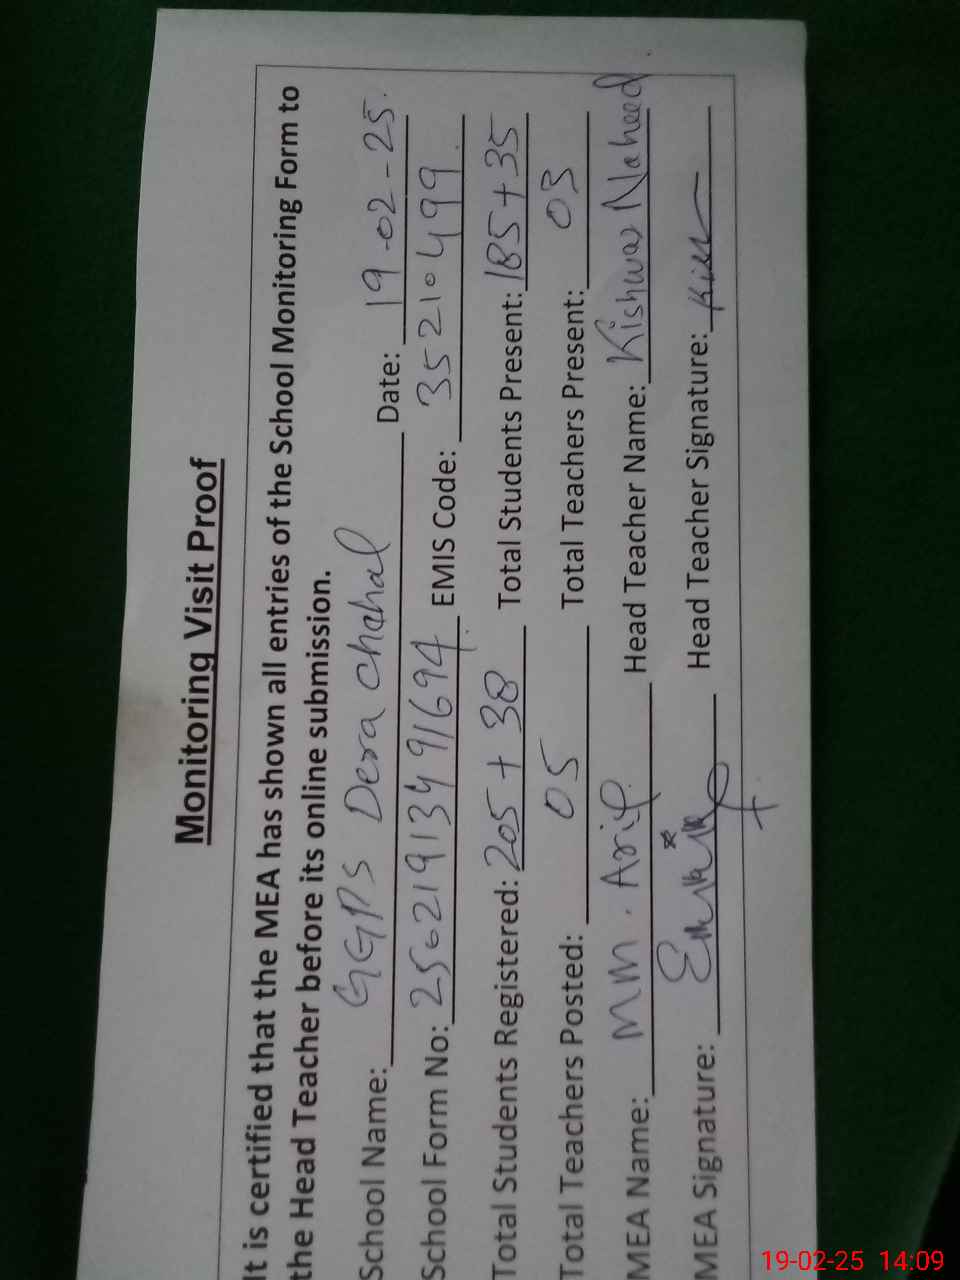 Monitoring Visit Proof
It is certified that the MEA has shown all entries of the School Monitoring Form to
the Head Teacher before its online submission.
School Name: GGPS Dera Chahal Date: 19-02-25.
School Form No: 2502191349 1694 EMIS Code: 35210499
Total Students Registered: 205 + 38 Total Students Present: 185 + 35
Total Teachers Posted: 05 Total Teachers Present: 03
MEA Name: MM. Arif Head Teacher Name: Kishwar Naheed
MEA Signature: Head Teacher Signature:
19-02-25 14:09